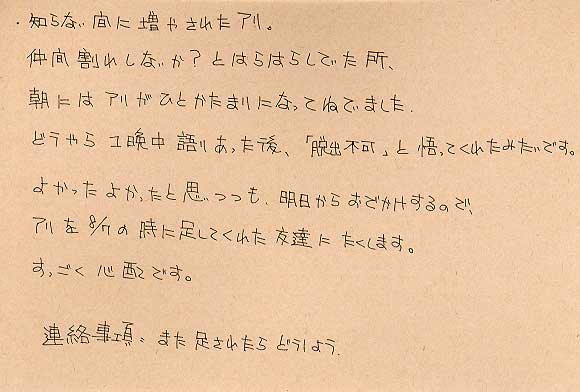 ・知らない間に増やされたアリ。
仲間割れしないか？とはらはらしていた所、
朝にはアリがひとかたまりになってねてました.
どうやら1晩中語りあった後、「脱出不可」と悟ってくれたみたいです。
よかったよかったと思いつつも、明日からおでかけするので、
アリを8/7の時に足してくれた友達にたくします。
すっごく心配です。
連絡事項。また足されたらどうしよう.